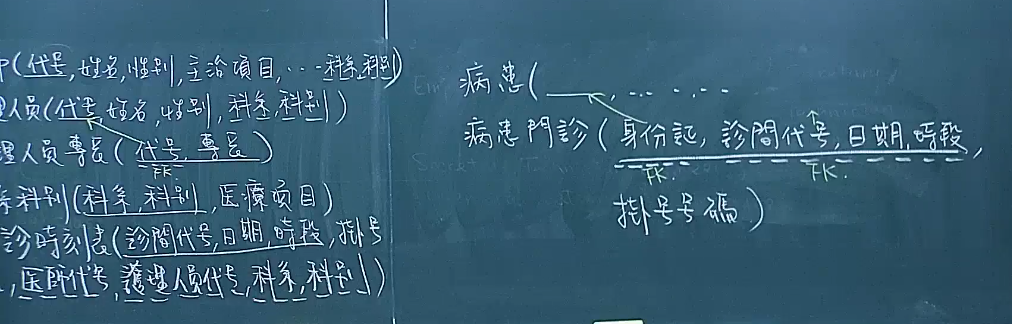 (代号,姓名,性别,主治項目,...科系,科别)
人員(代号,姓名,性别,科系,科别)
理人員專長(代号,專長)
FK.
科别(科系,科别,医療項目)
診時刻表(診間代号,日期,時段,掛号
,医師代号,護理人員代号,科系,科别)
病患(____,........)
病患門診(身份証,診間代号,日期,時段,
FK. FK.
掛号号碼)